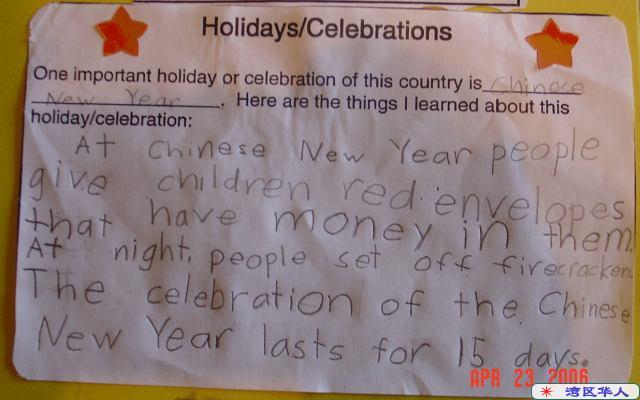 Holidays/Celebrations
One important holiday or celebration of this country is Chinese
New Year. Here are the things I learned about this
holiday/celebration:
At Chinese New Year people
give children red envelopes
that have money in them.
At night, people set off firecrackers.
The celebration of the Chinese
New Year lasts for 15 days.
APR 23 2006
湾区华人